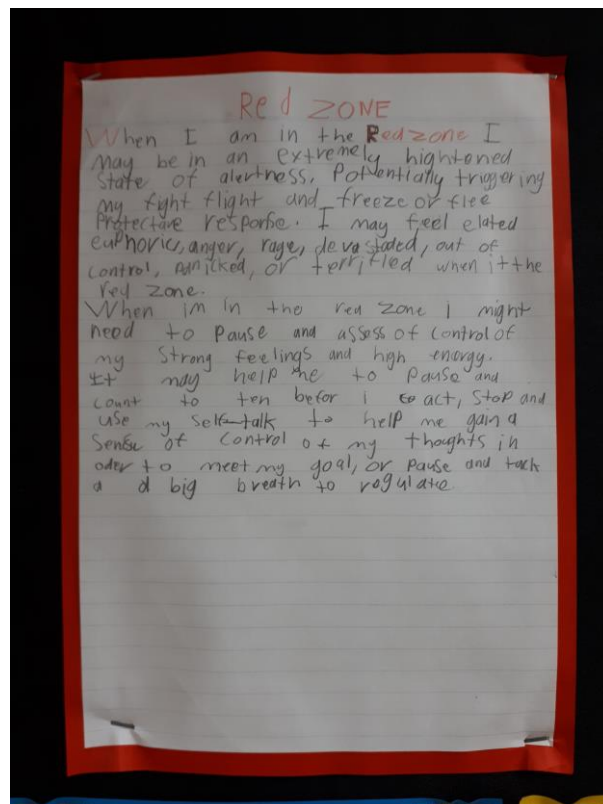 Red ZONE
When I am in the Redzone I
may be in an extremely hightened
state of alertness, Potentially triggering
my fight flight and freeze or flee
Protective response. I may feel elated
euphoric, anger, rage, devastated, out of
control, panicked, or terrified when it the
red zone.
When im in the red zone I might
need to Pause and assess of control of
my Strong feelings and high energy.
It may help me to Pause and
count to ten befor i act, Stop and
use my self-talk to help me gain a
Sense of control of my thoughts in
oder to meet my goal, or pause and tack
a d big breath to regulate